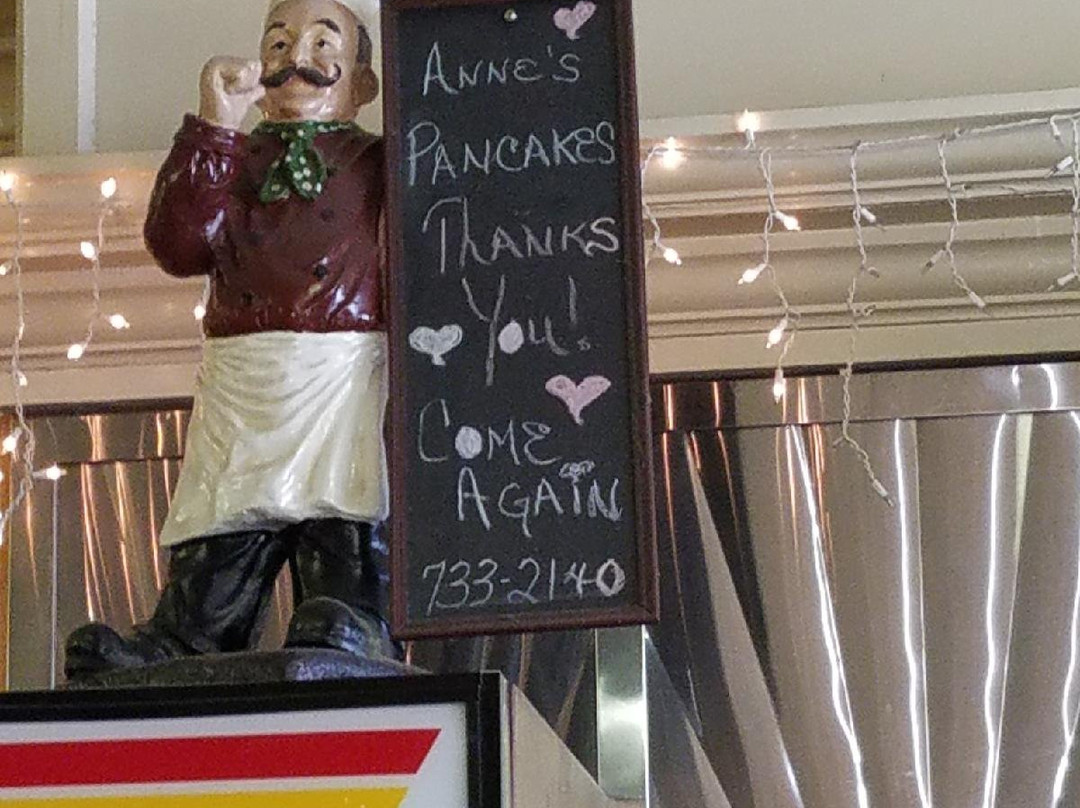 ANNE'S
PANCAKES
THANKS
YOU!
COME
AGAIN
733-2140